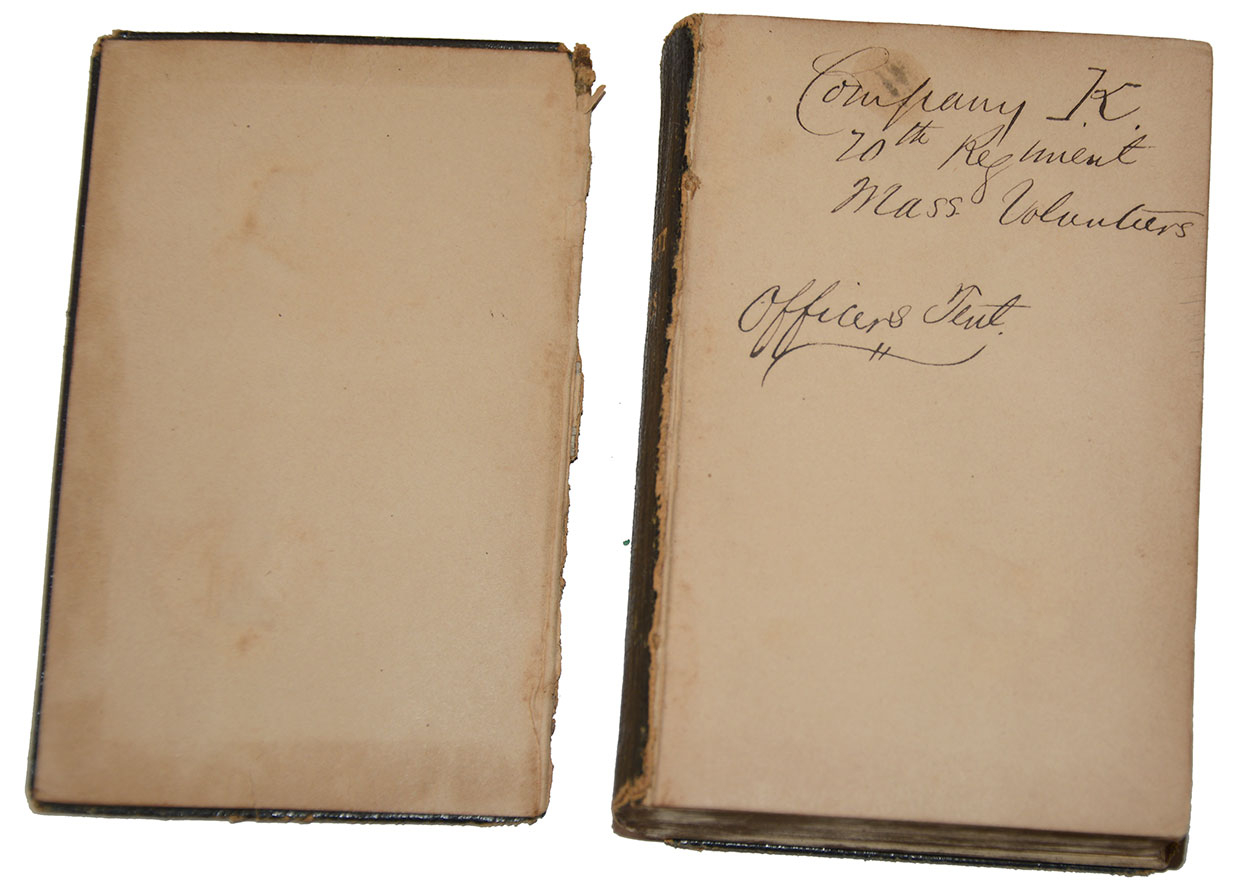 Company K.
20th Regiment
Mass. Volunteers
Officers Tent.